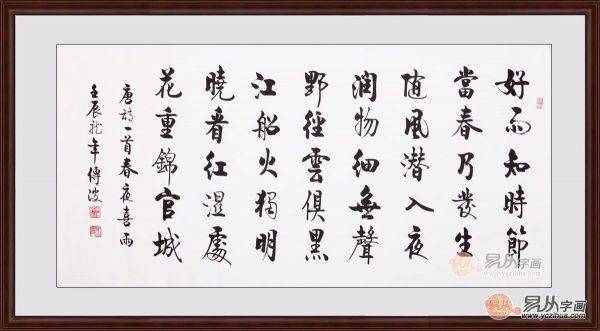 好雨知時節
當春乃發生
随風潜入夜
潤物细無聲
野徑雲俱黑
江船火獨明
曉看紅濕處
花重錦官城
唐詩一首春夜喜雨
壬辰龍年傅波
易从字画
www.yczihua.com
易从字画
www.yczihua.com